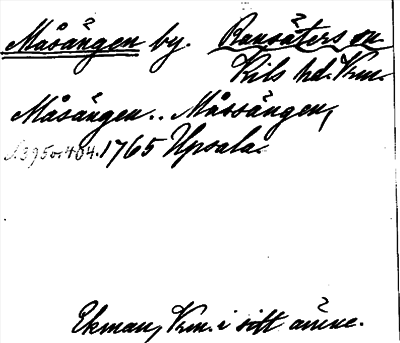 Måsängen by. Ransäters sn
Kils hd. Vrm.
Måsängen.. Måssängen,
N. 395 o. 404. 1765 Upsala.
Ekman, Vrm. i sitt ämne.